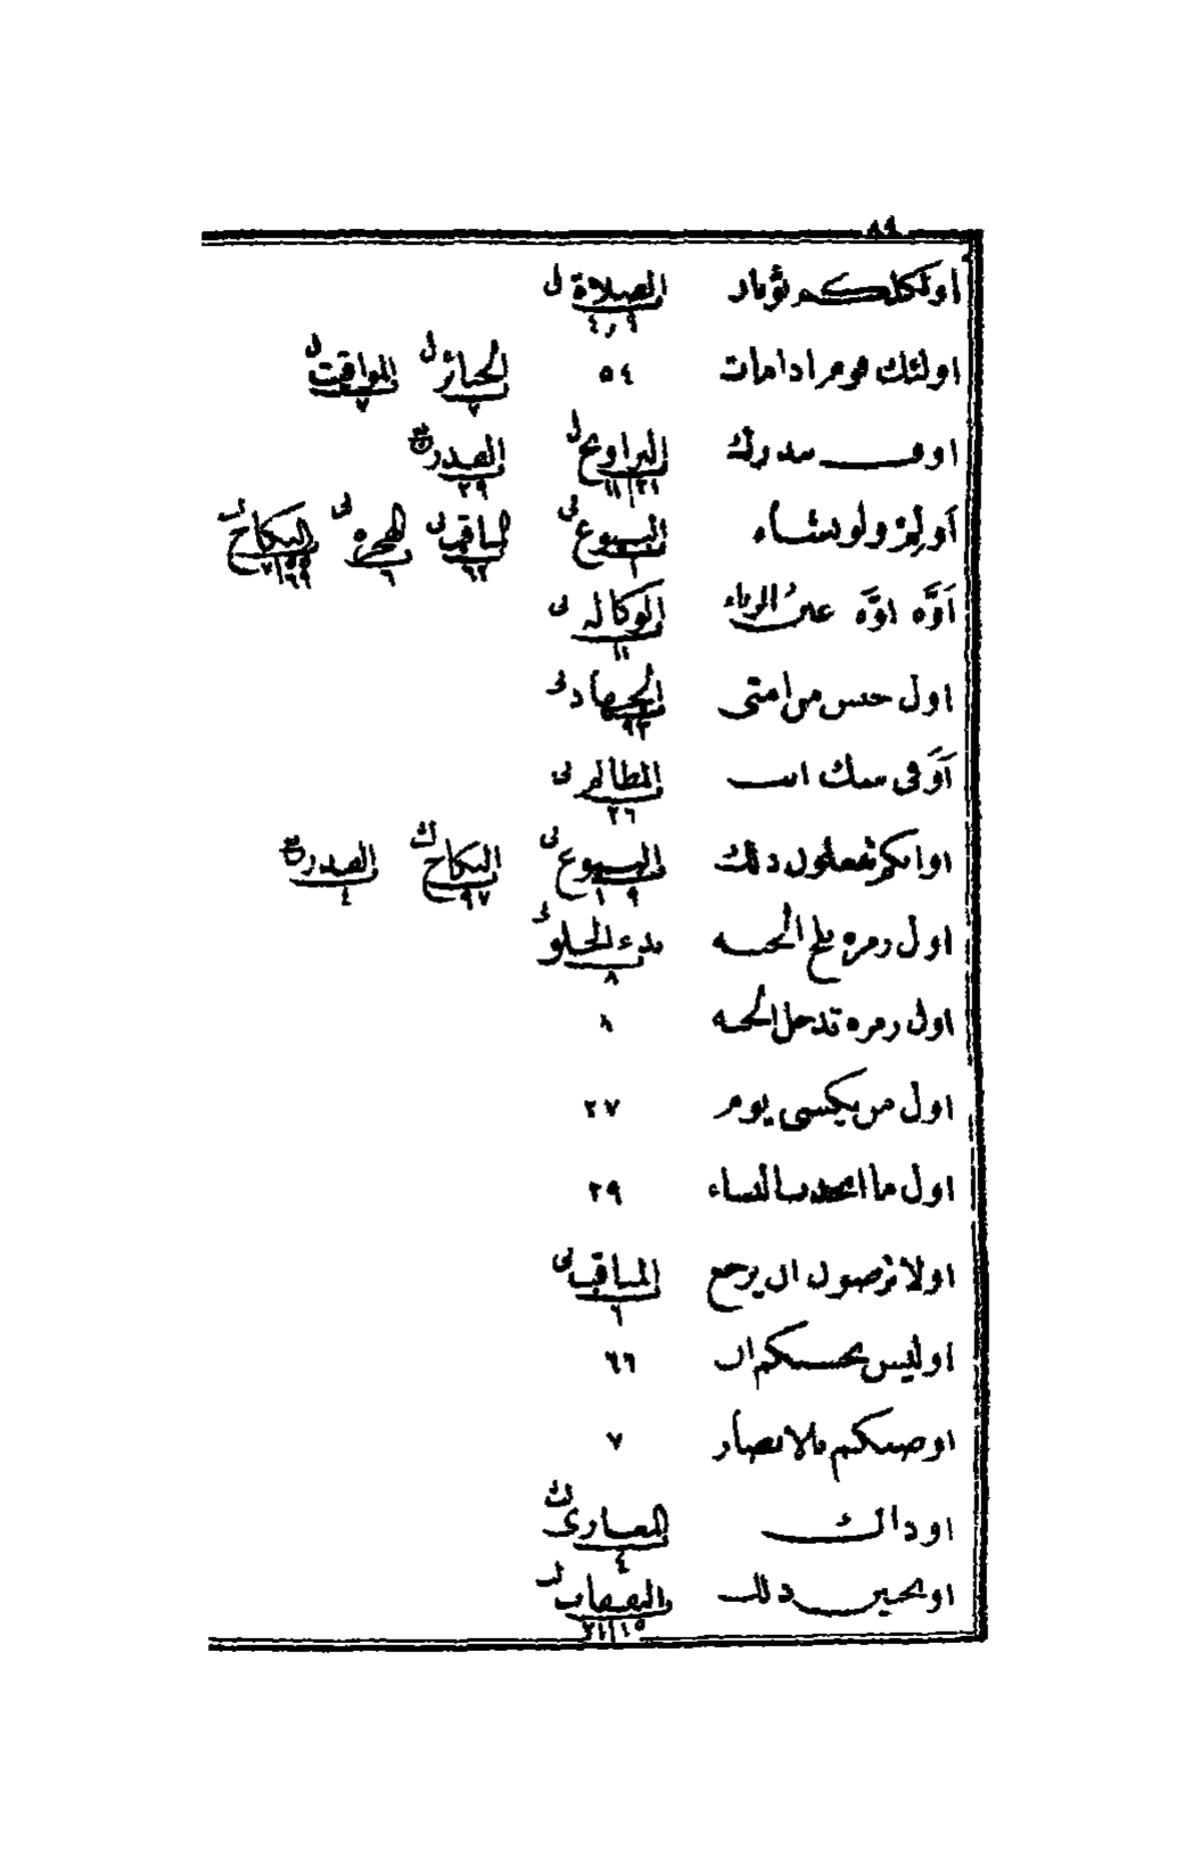 ٨٩
اولكلكم ثوبان الصلاة ل ٤ ٩
اولئك قوم اذا مات ٥٤ الجنائز ل ٧ المواقيت ل ٧
اوف بنذرك التراويح ل ١١ ٢١ النذر ٢٩
أولم ولو بشاة البيوع لى ١ المناقب لى ٦٢ الهجرة لى ٦ النكاح ل ٧ ٥٥ ٦٩
اَوَّه اوَّه عين الرباء الوكالة لى ١١
اول جيش من امتى الجهاد ٩٣
اَوَفى شك انت المظالم لى ٢٦
اوانكم تفعلون ذلك البيوع لى ١٠٩ النكاح ك ٩٧ القدر ٤
اول زمرة تلج الجنة بدء الخلق ٨
اول زمرة تدخل الجنة ٨
اول من يكسى يوم ٢٧
اول ما اتخذ النساء ٢٩
اولا ترضون ان يرجع المناقب لى ٦
اوليس بحسبكم ان ٦٦
اوصيكم بالانصار ٧
او ذاك المغازى ك ٤
او تحبين ذلك النفقات ك ١٥ ٢١